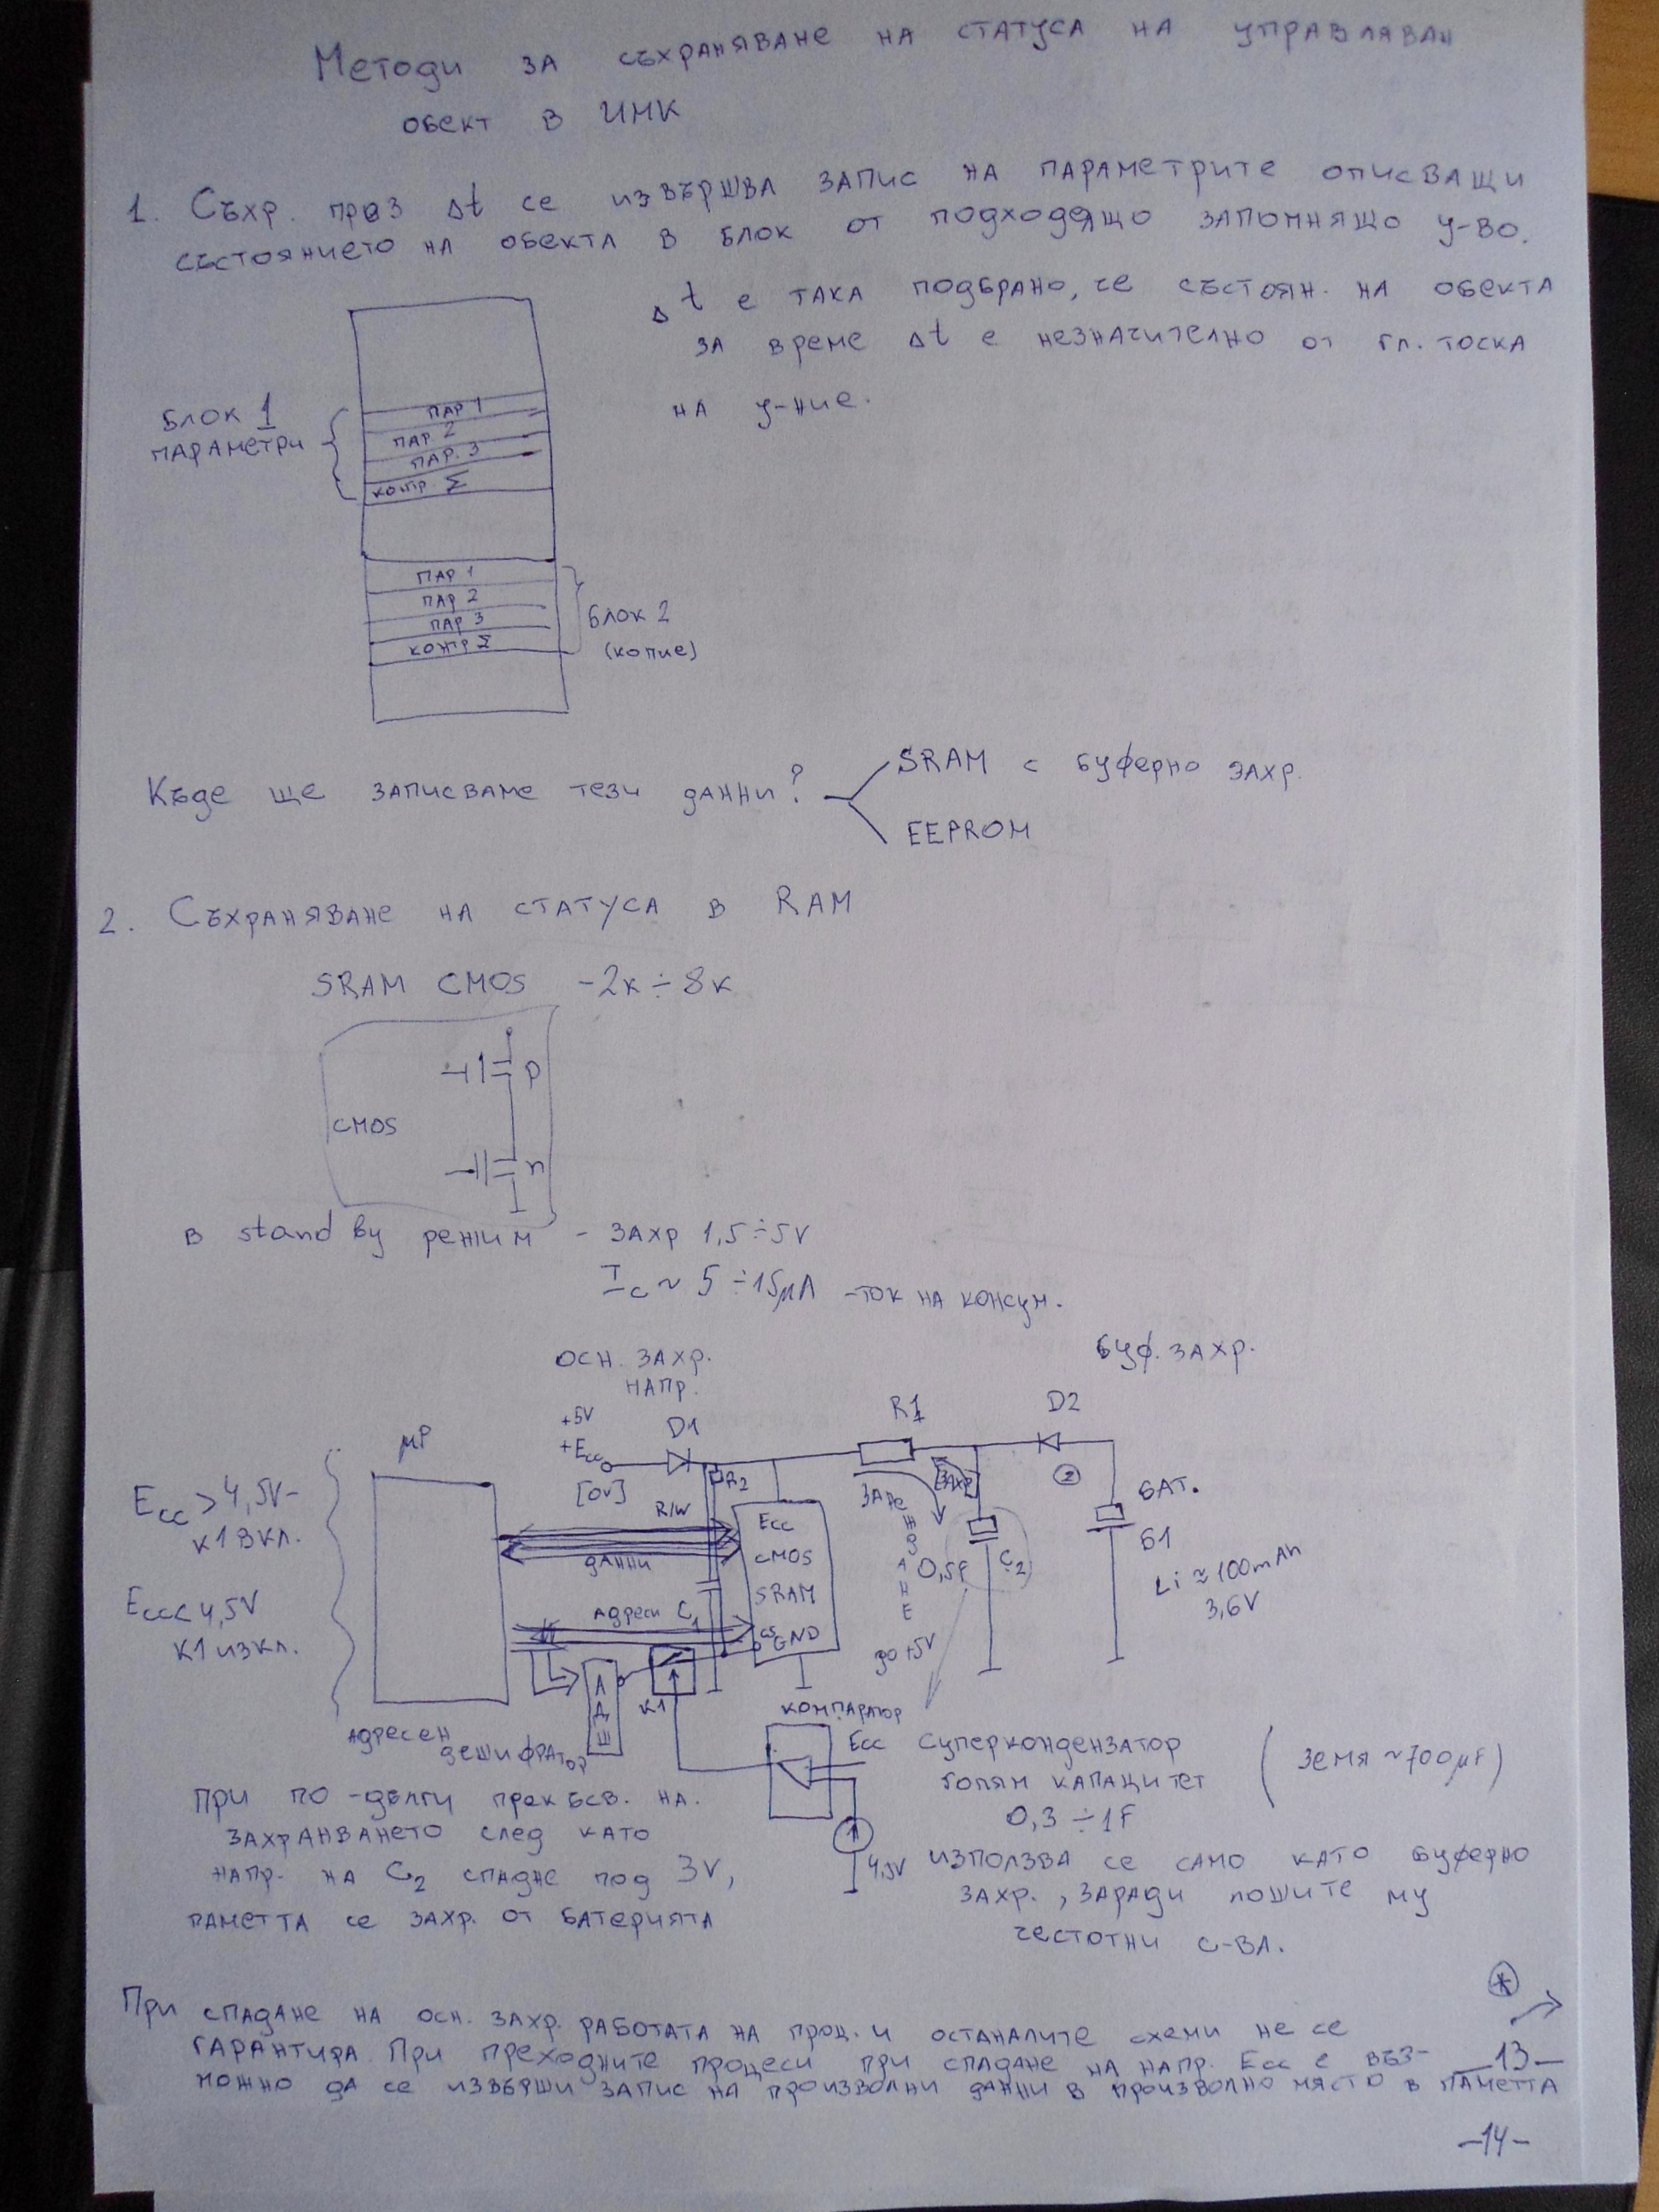 Методи за съхраняване на статуса на управляван
обект в ИМК
1. Съхр. през Δt се извършва запис на параметрите описващи
състоянието на обекта в блок от подходящо запомнящо у-во.
Δt е така подбрано, че състоян. на обекта
за време Δt е незначително от гл. точка
на у-ние.
Блок 1
параметри
ПАР 1
ПАР 2
ПАР. 3
контр. Σ
ПАР 1
ПАР 2
ПАР 3
контр Σ
Блок 2
(копие)
Къде ще записваме тези данни?
SRAM с буферно захр.
EEPROM
2. Съхраняване на статуса в RAM
SRAM CMOS - 2к ÷ 8к
CMOS
p
n
в stand by режим - захр 1,5 ÷ 5V
Ic ~ 5 ÷ 15μA - ток на консум.
осн. захр.
напр.
буф. захр.
+5V
+Ecc
[0V]
D1
R1
D2
μP
R2
Ecc > 4,5V -
К1 вкл.
Ecc < 4,5V
К1 изкл.
R/W
данни
адреси
C1
Ecc
CMOS
SRAM
CS GND
зареждане
до +5V
захр
0,5F
C2
2
БАТ.
Б1
Li ≈ 100mAh
3,6V
АДШ
К1
адресен
дешифратор
компаратор
Ecc
4,5V
суперкондензатор
голям капацитет
0,3 ÷ 1F
(земя ~ 700μF)
използва се само като буферно
захр., заради лошите му
честотни с-ва.
При по-дълги прекъсв. на
захранването след като
напр. на C2 спадне под 3V,
паметта се захр. от батерията
*
При спадане на осн. захр. работата на проц. и останалите схеми не се
гарантира. При преходните процеси при спадане на напр. Ecc е въз-
можно да се извърши запис на произволни данни в произволно място в паметта
-13-
-14-